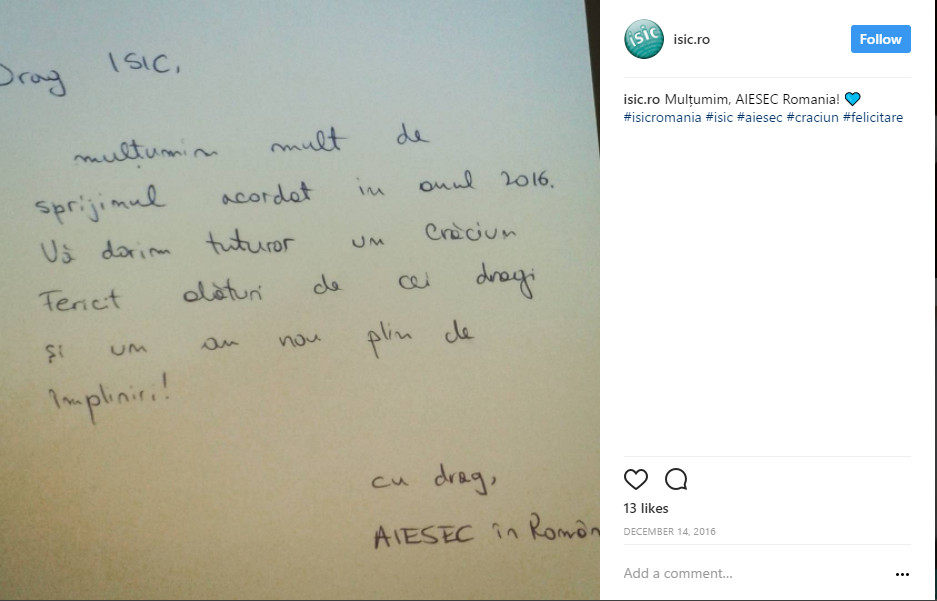 Drag ISIC,
mulțumim mult de
sprijinul acordat in anul 2016.
Vă dorim tuturor un Crăciun
Fericit alături de cei dragi
și un an nou plin de
împliniri!
cu drag,
AIESEC în Român
isic
isic.ro
Follow
isic.ro Mulțumim, AIESEC Romania! 💙
#isicromania #isic #aiesec #craciun #felicitare
13 likes
DECEMBER 14, 2016
Add a comment...